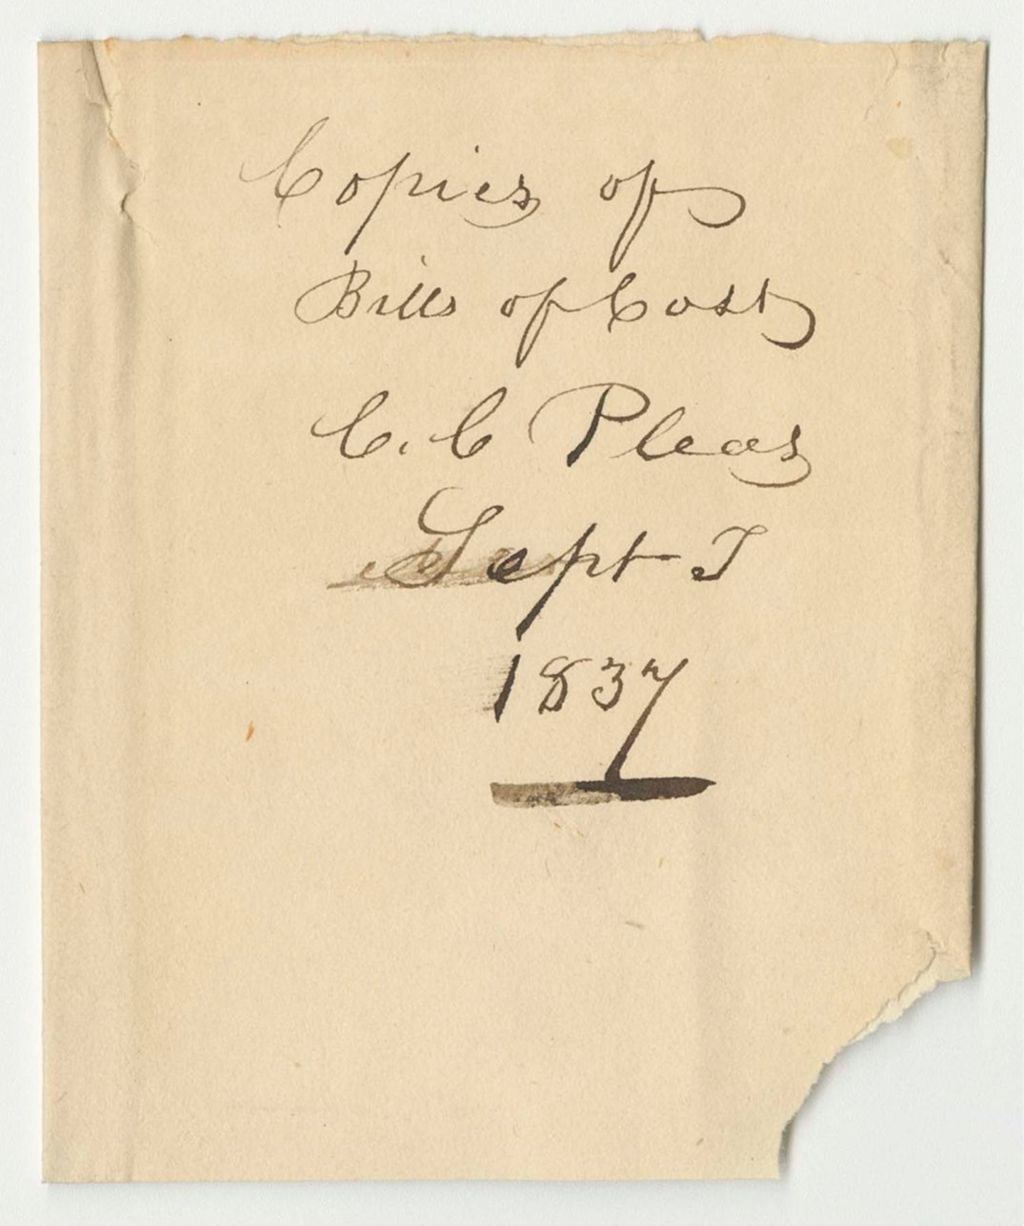 Copies of
Bills of Cost
C. C Pleas
Sept T
1837